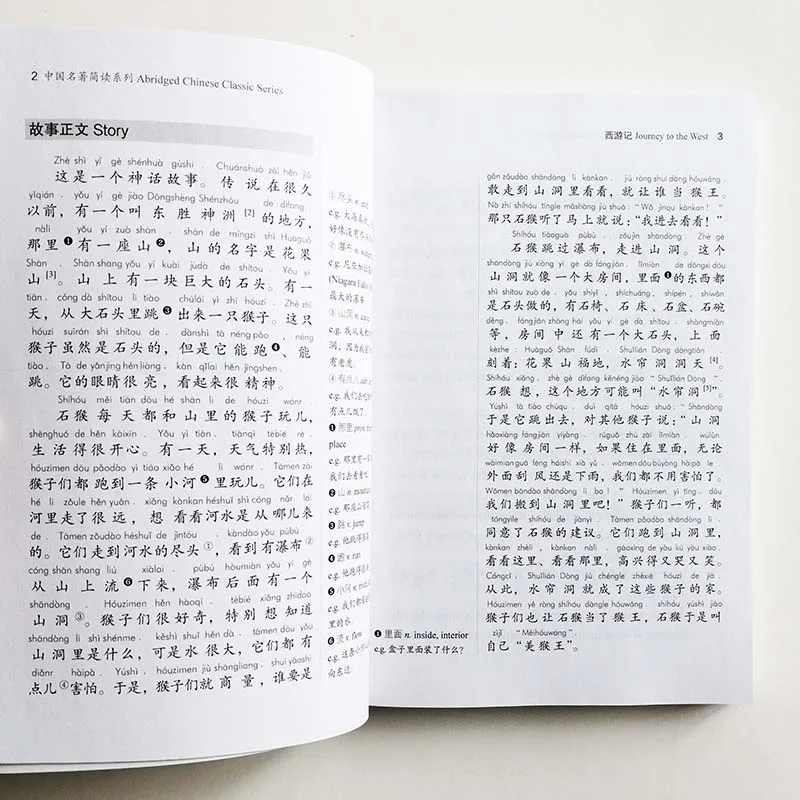 2 中国名著简读系列 Abridged Chinese Classic Series
故事正文 Story
Zhè shì yí gè shénhuà gùshi. Chuánshuō zài hěn jiǔ
这是一个神话故事。传说在很久
yǐqián, yǒu yí gè jiào Dōngshèng Shénzhōu de dìfang,
以前，有一个叫东胜神洲[2]的地方，
nàli yǒu yí zuò shān, shān de míngzi shì Huāguǒ
那里❶有一座山❷，山的名字是花果
Shān. Shān shang yǒu yí kuài jùdà de shítou. Yǒu yì
山[3]。山上有一块巨大的石头。有一
tiān, cóng dà shítou li tiào chūlái yì zhī hóuzi. Zhè zhī
天，从大石头里跳❸出来一只猴子。这只
hóuzi suīrán shì shítou de, dànshì tā néng pǎo, néng
猴子虽然是石头的，但是它能跑❹、能
tiào. Tā de yǎnjing hěn liàng, kàn qǐlái hěn jīngshen.
跳。它的眼睛很亮，看起来很精神。
Shíhóu měi tiān dōu hé shān li de hóuzi wánr,
石猴每天都和山里的猴子玩儿，
shēnghuó de hěn kāixīn. Yǒu yì tiān, tiānqì tèbié rè,
生活得很开心。有一天，天气特别热，
hóuzimen dōu pǎodào yì tiáo xiǎo hé li wánr. Tāmen zài
猴子们都跑到一条小河❺里玩儿。它们在
hé li zǒule hěn yuǎn, xiǎng kànkan héshuǐ shì cóng nǎr lái
河里走了很远，想看看河水是从哪儿来
de. Tāmen zǒudào héshuǐ de jìntóu, kàndào yǒu pùbù
的。它们走到河水的尽头①，看到有瀑布②
cóng shān shang liú xiàlai, pùbù hòumiàn yǒu yí gè
从山上流❻下来，瀑布后面有一个
shāndòng. Hóuzimen hěn hàoqí, tèbié xiǎng zhīdào
山洞③。猴子们很好奇，特别想知道
shāndòng li shì shénme, kěshì shuǐ hěn dà, tāmen dōu yǒu
山洞里是什么，可是水很大，它们都有
diǎnr hàipà. Yúshì, hóuzimen jiù shāngliang, shuí yàoshi
点儿④害怕。于是，猴子们就商量，谁要是
② 瀑布 n.
(Niagara Falls)
最大的瀑布。
③ 山洞 n.
有老虎。
④ 有点儿
有点儿饿了。
❶ 那里 pron.
place
e.g. 那里有一
我们去看看吧
❷ 山 n.
e.g. 那座山
❸ 跳 v. jump
e.g. 他跳得很
❹ 跑 v. run
e.g. 他跑得很
❺ 小河 n.
e.g. 我们都
里的水。
❻ 流 v. flow
e.g. 这条小
向左边。
西游记 Journey to the West 3
gǎn zǒudào shāndòng li kànkan, jiù ràng shuí dāng hóuwáng.
敢走到山洞里看看，就让谁当猴王。
Nà zhī shíhóu tīngle mǎshàng jiù shuō: "Wǒ jìnqu kànkan!"
那只石猴听了马上就说：“我进去看看！”
Shíhóu tiàoguò pùbù, zǒujìn shāndòng. Zhège
石猴跳过瀑布，走进山洞。这个
shāndòng jiù xiàng yí gè dà fángjiān, lǐmiàn de dōngxi dōu
山洞就像一个大房间，里面❶的东西都
shì shítou zuò de, yǒu shíyǐ, shíchuáng, shípén, shíwǎn
是石头做的，有石椅、石床、石盆、石碗
děng, fángjiān zhōng hái yǒu yí gè dà shítou, shàngmiàn
等，房间中还有一个大石头，上面
kèzhe: Huāguǒ Shān fúdì, Shuǐlián Dòng dòngtiān
刻着：花果山福地，水帘洞洞天[4]。
Shíhóu xiǎng, zhè ge dìfang kěnéng jiào "Shuǐlián Dòng".
石猴想，这个地方可能叫“水帘洞[5]”。
Yúshì tā tiào chūqu, duì qítā hóuzi shuō: "Shāndòng
于是它跳出去，对其他猴子说：“山洞
hǎoxiàng fángjiān yíyàng, rúguǒ zhù zài lǐmiàn, wúlùn
好像房间一样，如果住在里面，无论
wàimian guā fēng háishi xià yǔ, wǒmen dōu búyòng hàipà le.
外面刮风还是下雨，我们都不用害怕了。
Wǒmen bāndào shāndòng li ba!" Hóuzimen yì tīng, dōu
我们搬到山洞里吧！”猴子们一听，都
tóngyìle shíhóu de jiànyì. Tāmen pǎodào shāndòng li,
同意了石猴的建议。它们跑到山洞里，
kànkan zhèli, kànkan nàli, gāoxìng de yòu kū yòu xiào.
看看这里、看看那里，高兴得又哭又笑。
Cóngcǐ, Shuǐlián Dòng jiù chéngle zhèxiē hóuzi de jiā.
从此，水帘洞就成了这些猴子的家。
Hóuzimen yě ràng shíhóu dāngle hóuwáng, shíhóu yúshì jiào
猴子们也让石猴当了猴王，石猴于是叫
zìjǐ "Měihóuwáng".
自己“美猴王”。
❶ 里面 n. inside, interior
e.g. 盒子里面装了什么？